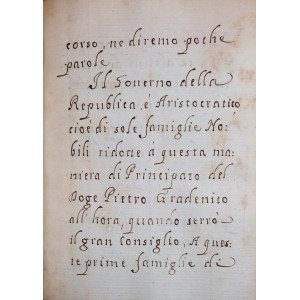 corso, ne diremo poche
parole.
Il Governo della
Republica, è Aristocratico
cioè di sole famiglie No-
bili ridotte à questa ma-
niera di Principato del
Doge Pietro Gradenico
all'hora, quando serrò
il gran Consiglio, A ques-
te prime famiglie di